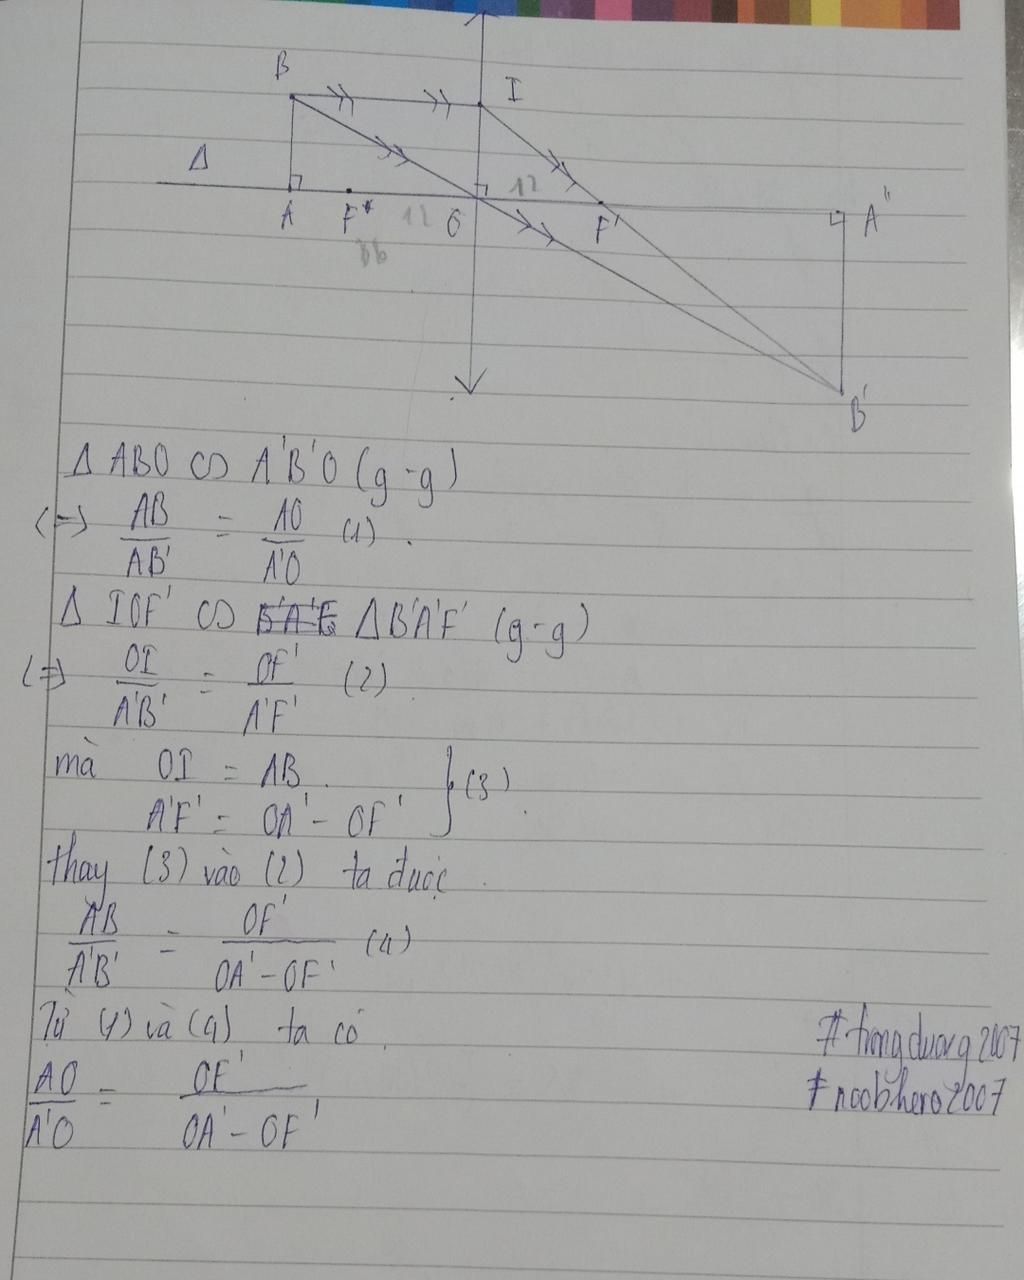 B
I
Δ
12
A F 12 O F' A''
B'
Δ ABO ∽ A'B'O (g-g)
(=) AB/AB' = AO/A'O (1).
Δ IOF' ∽ ΔB'A'F' (g-g)
(=) OI/A'B' = OF'/A'F' (2)
mà OI = AB
A'F' = OA' - OF' } (3)
thay (3) vào (2) ta được
AB/A'B' = OF'/OA' - OF' (4)
Từ (1) và (4) ta có
AO/A'O = OF'/OA' - OF'
#trongduong2007
#noobhero2007